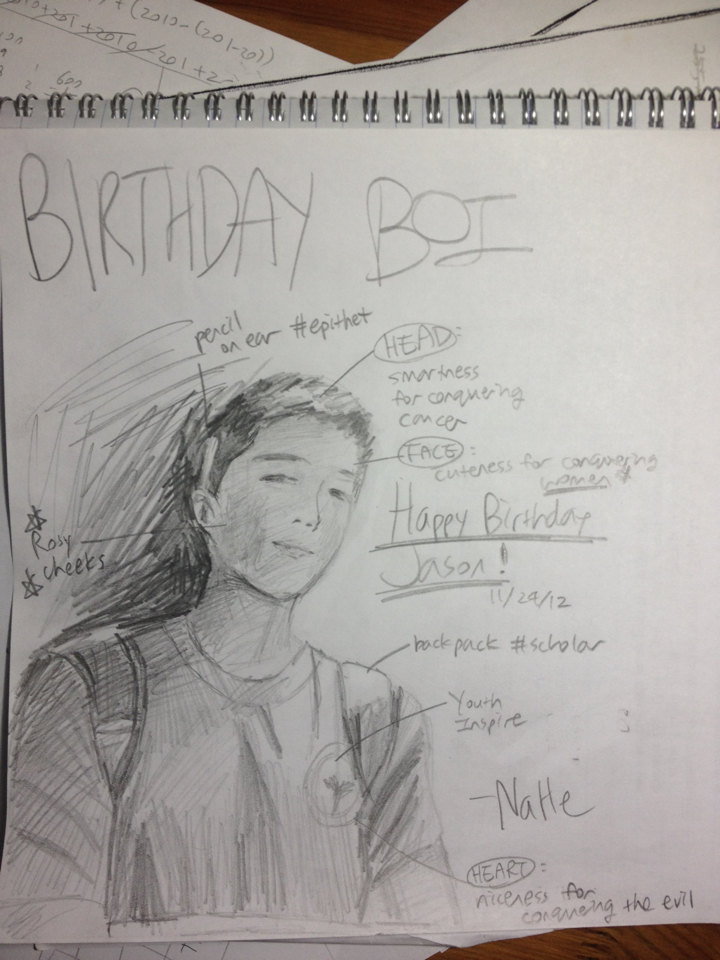 + (2010-(201-201)
BIRTHDAY BOI
pencil
on ear #epithet
HEAD:
smartness
for conquering
cancer
FACE:
cuteness for conquering
women
Happy Birthday
Jason!
11/24/12
Rosy
cheeks
backpack #scholar
Youth
Inspire
HEART:
niceness for
conquering the evil